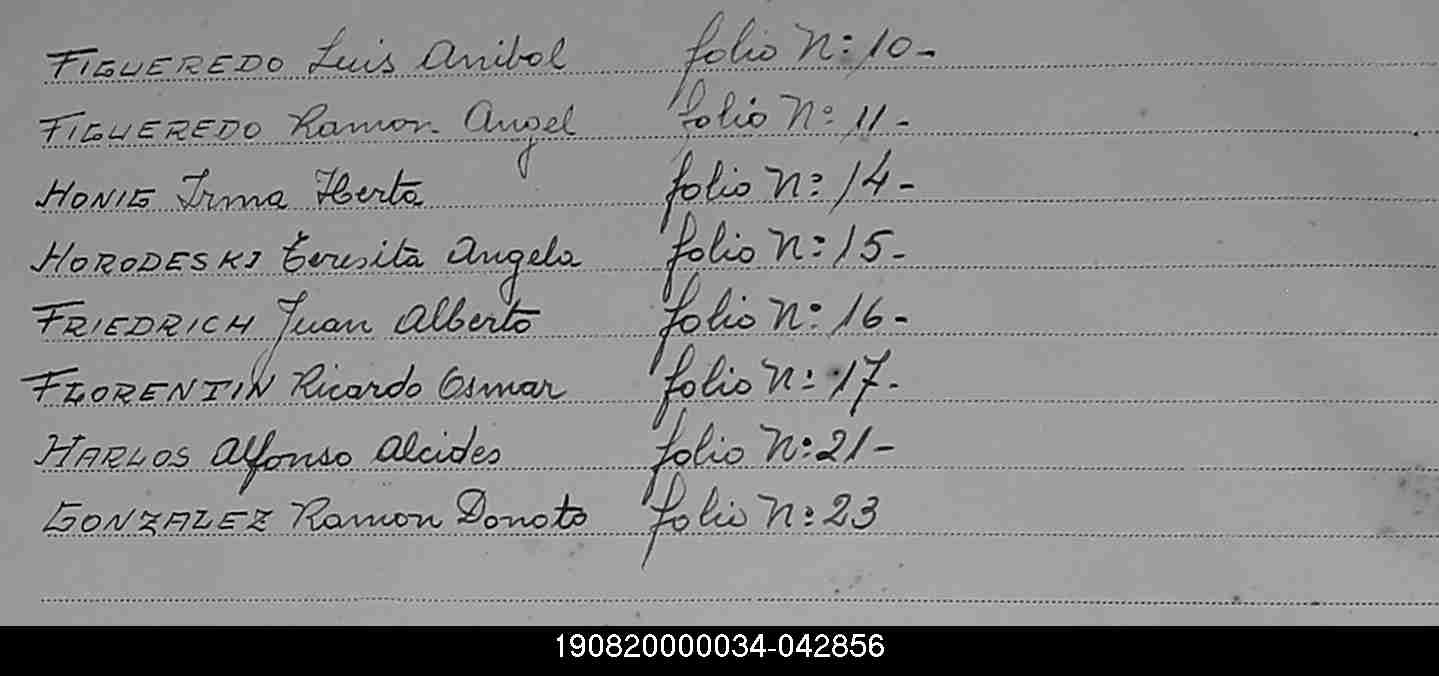 FIGUEREDO Luis Anibal folio Nº: 10-
FIGUEREDO Ramon Angel folio Nº 11-
HONIG Irma Herta folio Nº: 14-
HORODESKI Teresita Angela folio Nº: 15-
FRIEDRICH Juan Alberto folio Nº: 16-
FLORENTIN Ricardo Osmar folio Nº: 17-
HARLOS Alfonso Alcides folio Nº: 21-
GONZALEZ Ramon Donato folio Nº: 23
190820000034-042856